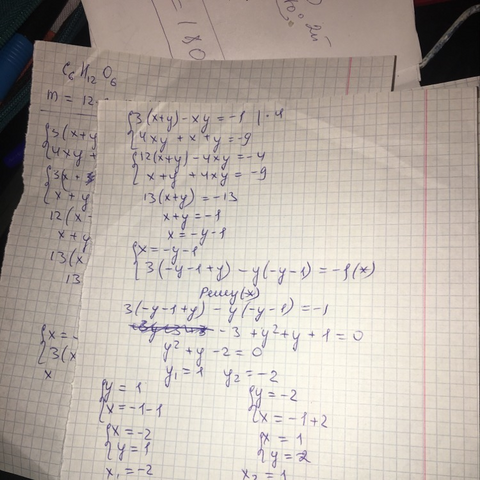 180
C₆H₁₂O₆
m = 12
3(x+y
4xy +
x + y
12(x -
x + y
13(x
13
x = -
3(x
x
{3(x+y)-xy=-1 | ·4
{4xy+x+y=-9
{12(x+y)-4xy=-4
{x+y+4xy=-9
13(x+y)=-13
x+y=-1
x=-y-1
{x=-y-1
{3(-y-1+y)-y(-y-1)=-1(*)
Решу(*)
3(-y-1+y)-y(-y-1)=-1
-3+y²+y+1=0
y²+y-2=0
y₁=1 y₂=-2
{y=1
{x=-1-1
{x=-2
{y=1
x₁=-2
{y=-2
{x=-1+2
{x=1
{y=2
x₂=1